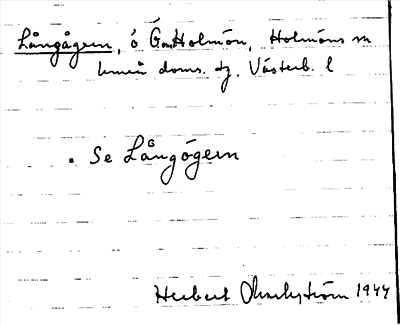 Långågern, ö Ö om Holmön, Holmöns sn
Umeå doms. tg. Västerb. l
. Se Långögern
Herbert 1944